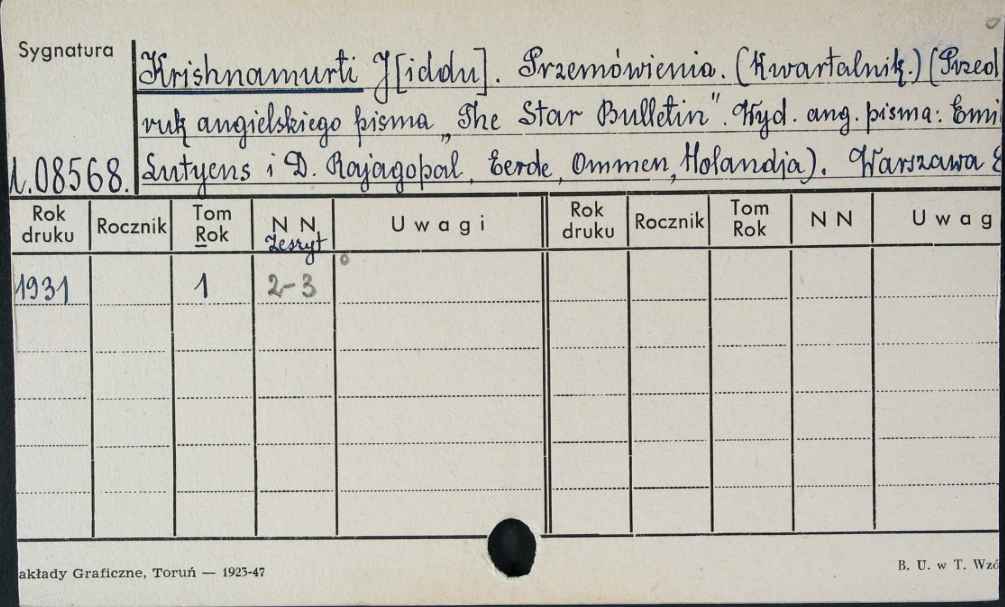 Sygnatura
Krishnamurti J[iddu]. Przemówienia. (Kwartalnik.) (Przed
ruk angielskiego pisma „The Star Bulletin". Wyd. ang. pisma: Emi
08568. Lutyens i D. Rajagopal, Eerde, Ommen, Holandja). Warszawa
Rok druku Rocznik Tom Rok N N Zeszyt U w a g i Rok druku Rocznik Tom Rok N N U w a g
1931 1 2-3
akłady Graficzne, Toruń — 1923-47 B. U. w T. Wzó